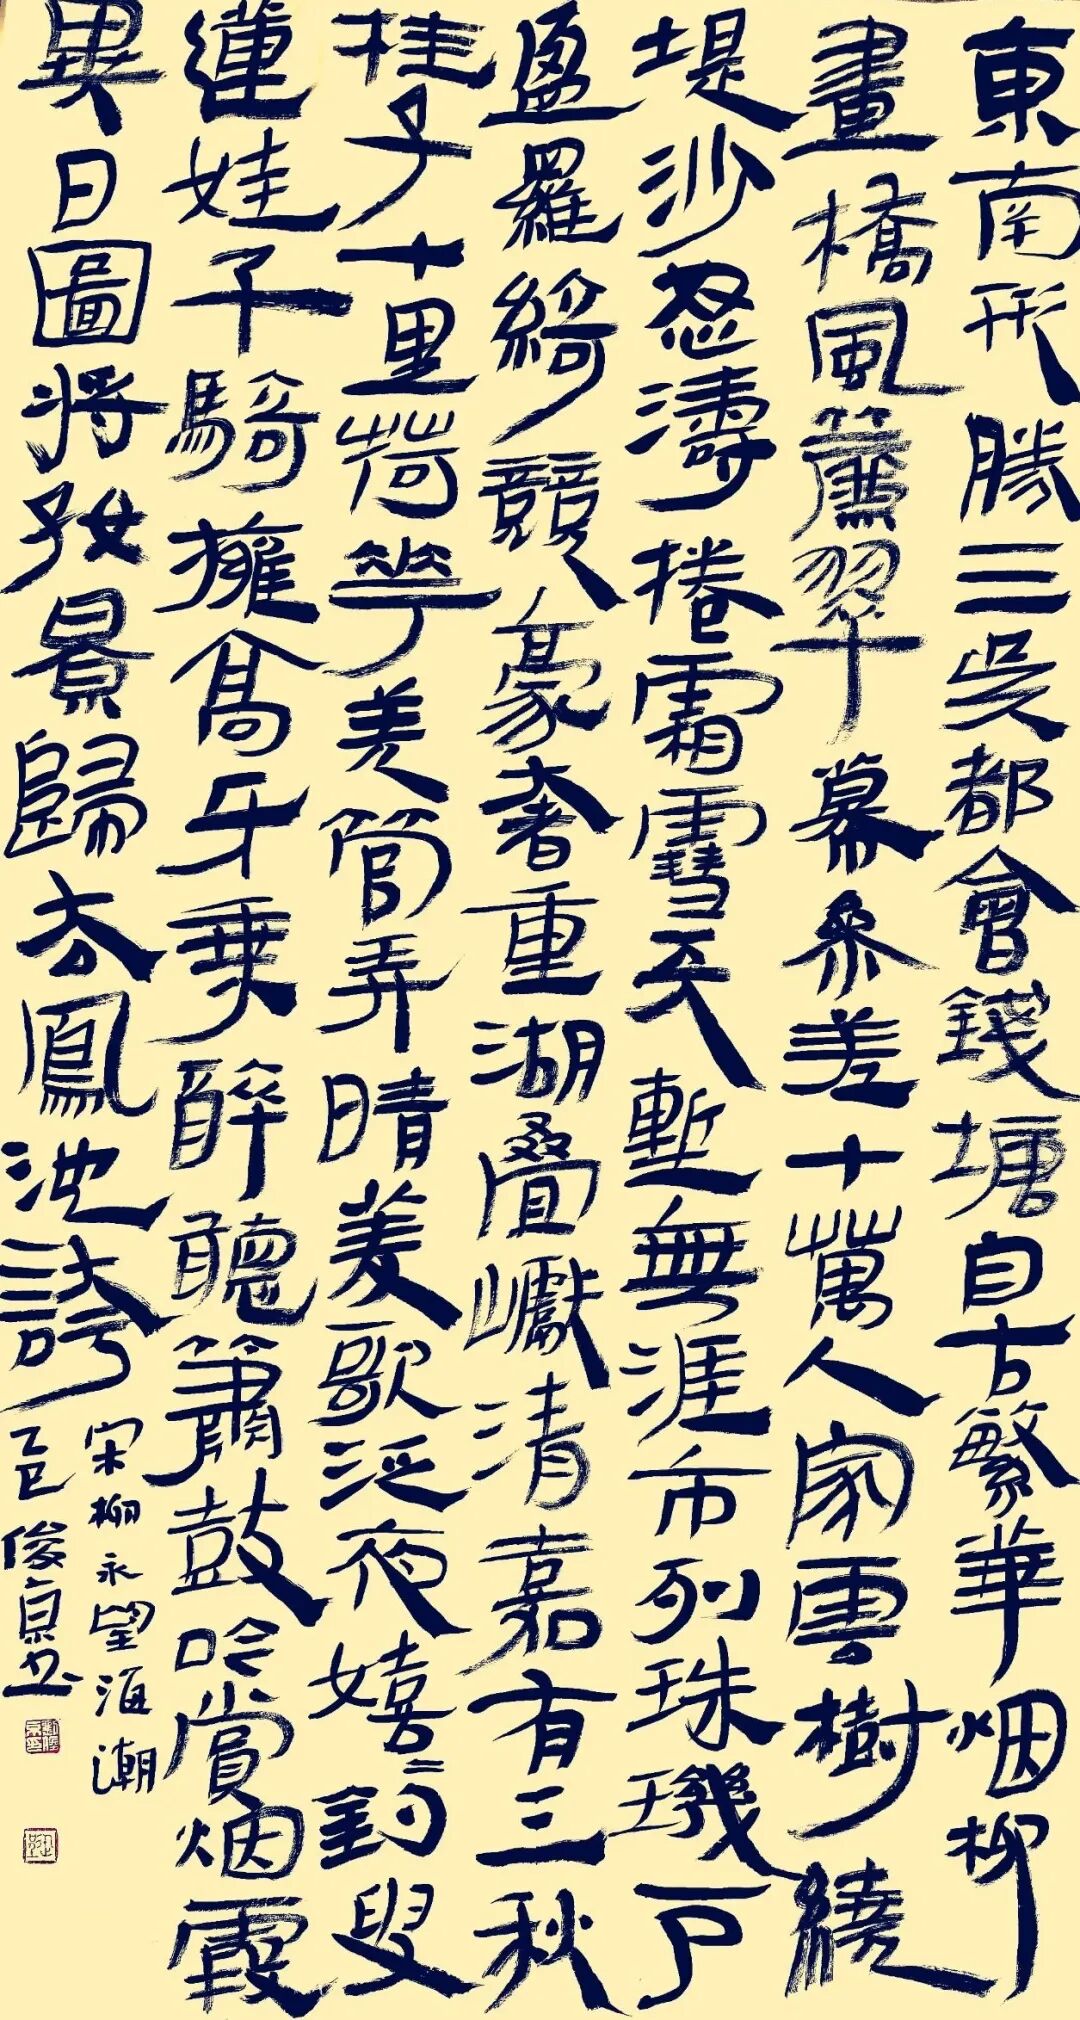 東南形勝三吳都會錢塘自古繁華烟柳
畫橋風簾翠幕參差十萬人家雲樹繞
堤沙怒濤捲霜雪天塹無涯市列珠璣戶
盈羅綺競豪奢重湖疊巘清嘉有三秋
桂子十里荷花羌管弄晴菱歌泛夜嬉〻釣叟
蓮娃千騎擁高牙乘醉聽簫鼓吟賞烟霞
異日圖將好景歸去鳳池誇
宋柳永望海潮
乙巳俊京书